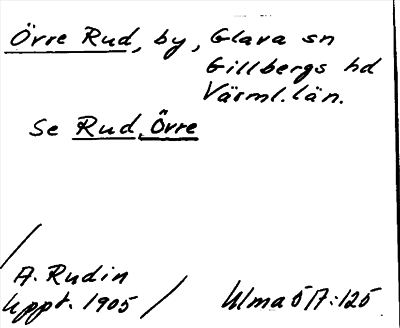 Övre Rud, by, Glava sn
Gillbergs hd
Värml. län.
Se Rud, Övre
A. Rudin
Uppt. 1905
Ulma 517:125